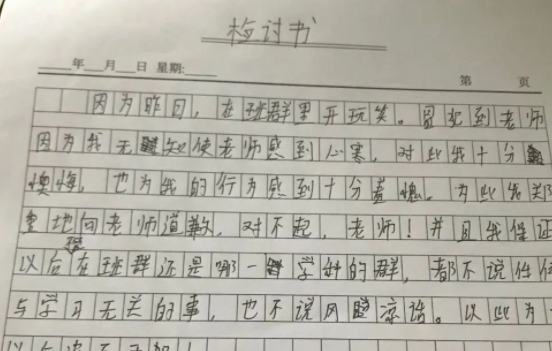 检讨书
年 月 日 星期:
第 页
因为昨日，在班群里开玩笑。冒犯到老师
因为我无知使老师感到心寒，对此我十分
懊悔，也为我的行为感到十分羞愧。为此我郑
重地向老师道歉，对不起，老师！并且我保证
以后在班群还是哪一学科的群，都不说任何
与学习无关的事，也不说风凉话。以此为